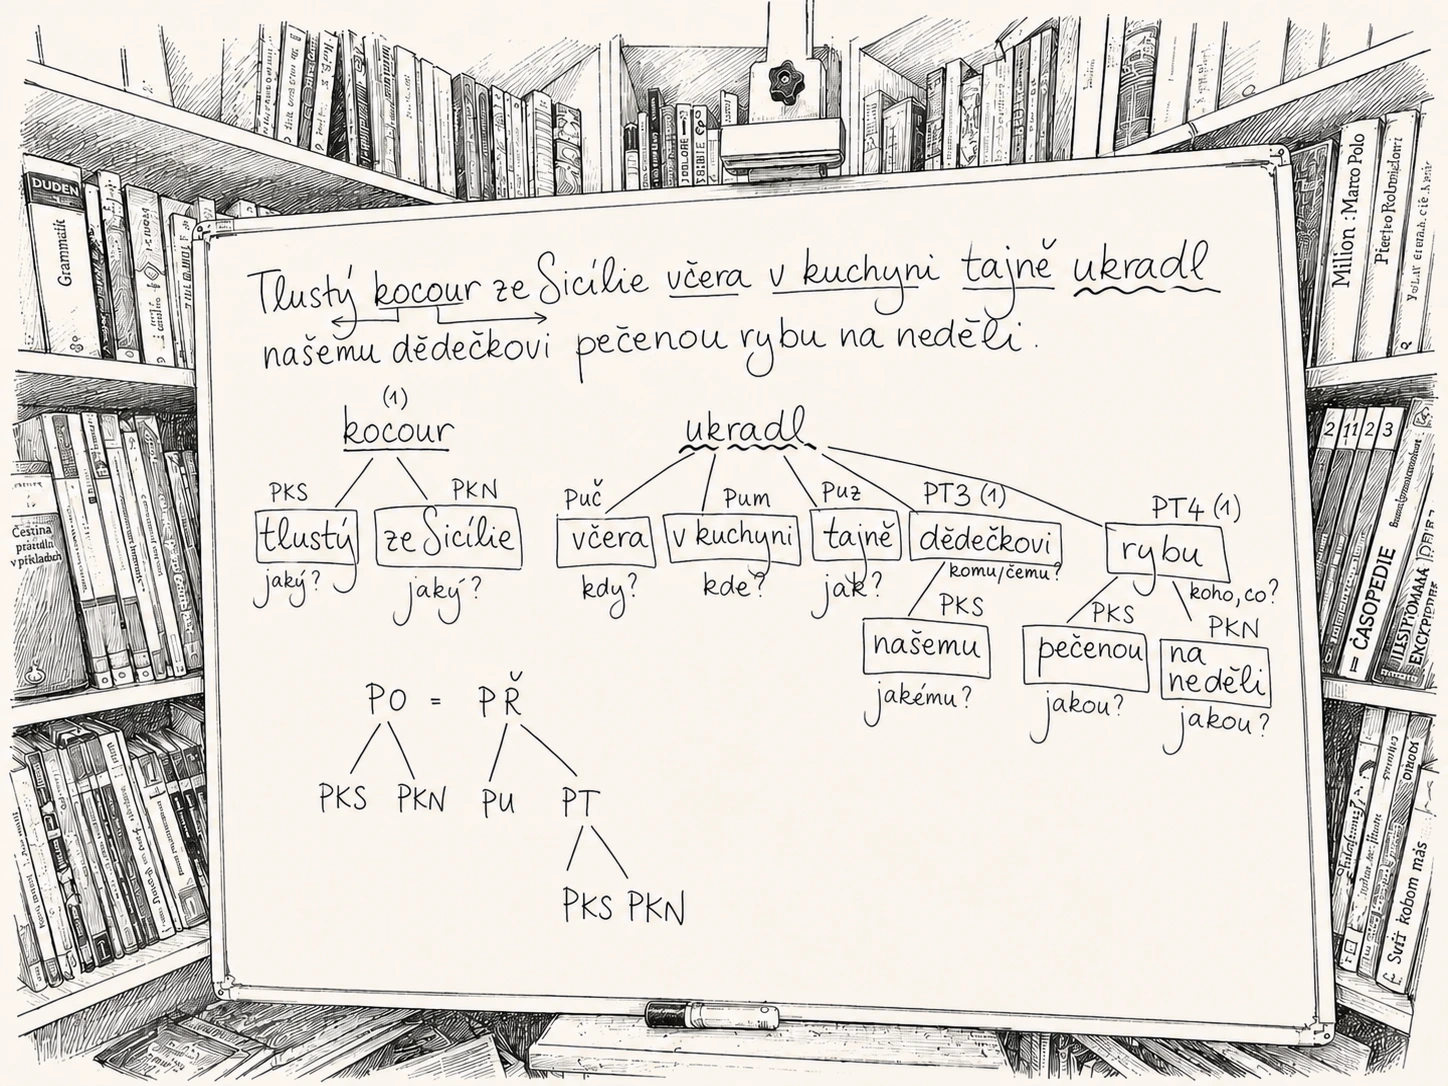 Tlustý kocour ze Sicílie včera v kuchyni tajně ukradl
našemu dědečkovi pečenou rybu na neděli.
(1)
kocour
PKS PKN
tlustý ze Sicílie
jaký? jaký?
ukradl
Puč Pum Puz PT3 (1) PT4 (1)
včera v kuchyni tajně dědečkovi rybu
kdy? kde? jak? komu/čemu? koho, co?
PKS PKS PKN
našemu pečenou na
neděli
jakému? jakou? jakou?
PO = PŘ
PKS PKN PU PT
PKS PKN
DUDEN
Grammatik
Čeština
pravidla
v příkladech
Milion : Marco Polo
2 11 2 3
ČASOPEDIE